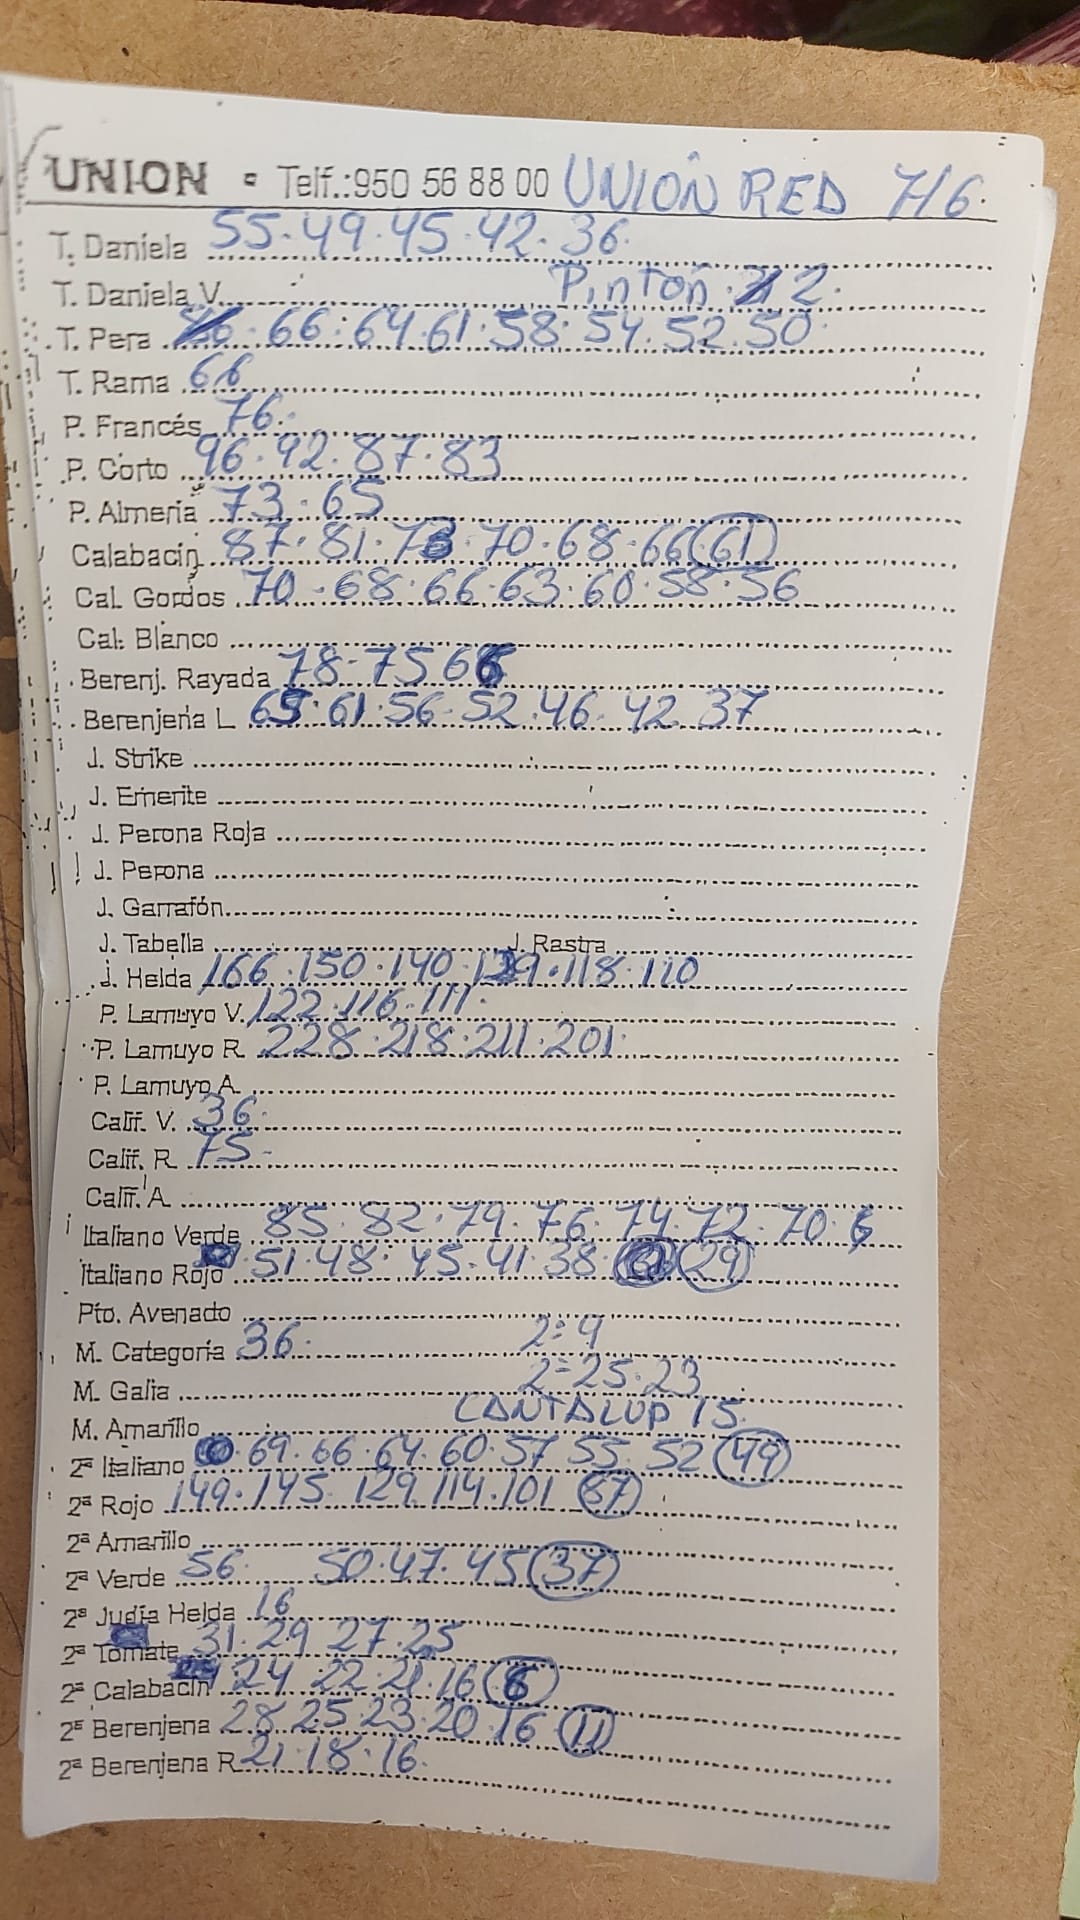 UNION - Telf.:950 56 88 00 UNIÓN RED 7/6.
T. Daniela 55.49.45.42.36.
T. Daniela V. Pinton. 2.
T. Pera 66.64.61.58.54.52.50
T. Rama 66
P. Francés 76.
P. Corto 96.92.87.83
P. Almería 73.65
Calabacín 87.81.73.70.68.66 61
Cal. Gordos 70.68.66.63.60.58.56
Cal. Blanco
Berenj. Rayada 78.75 66
Berenjena L 65.61.56.52.46.42.37
J. Strike
J. Emerite
J. Perona Roja
J. Perona
J. Garrafón
J. Tabella J. Rastra
J. Helda 166.150.140.129.118.110
P. Lamuyo V. 122.116.111.
P. Lamuyo R 228.218.211.201.
P. Lamuyo A
Calif. V. 36.
Calif. R 75-
Calif. A
Italiano Verde 85.82.79.76.74.72.70.
Italiano Rojo 51.48.45.41.38. 29
Pto. Avenado
M. Categoría 36. 2=9
M. Galia 2=25.23
M. Amarillo CANTALUP 15.
2ª Italiano 69.66.64.60.57 55.52 49
2ª Rojo 149.145 129.114.101 87
2ª Amarillo
2ª Verde 56. 50.47.45 37
2ª Judía Helda 16
2ª Tomate 31.29 27.25
2ª Calabacín 24 22.21.16 6
2ª Berenjena 28 25.23.20.16 11
2ª Berenjena R 21.18.16.